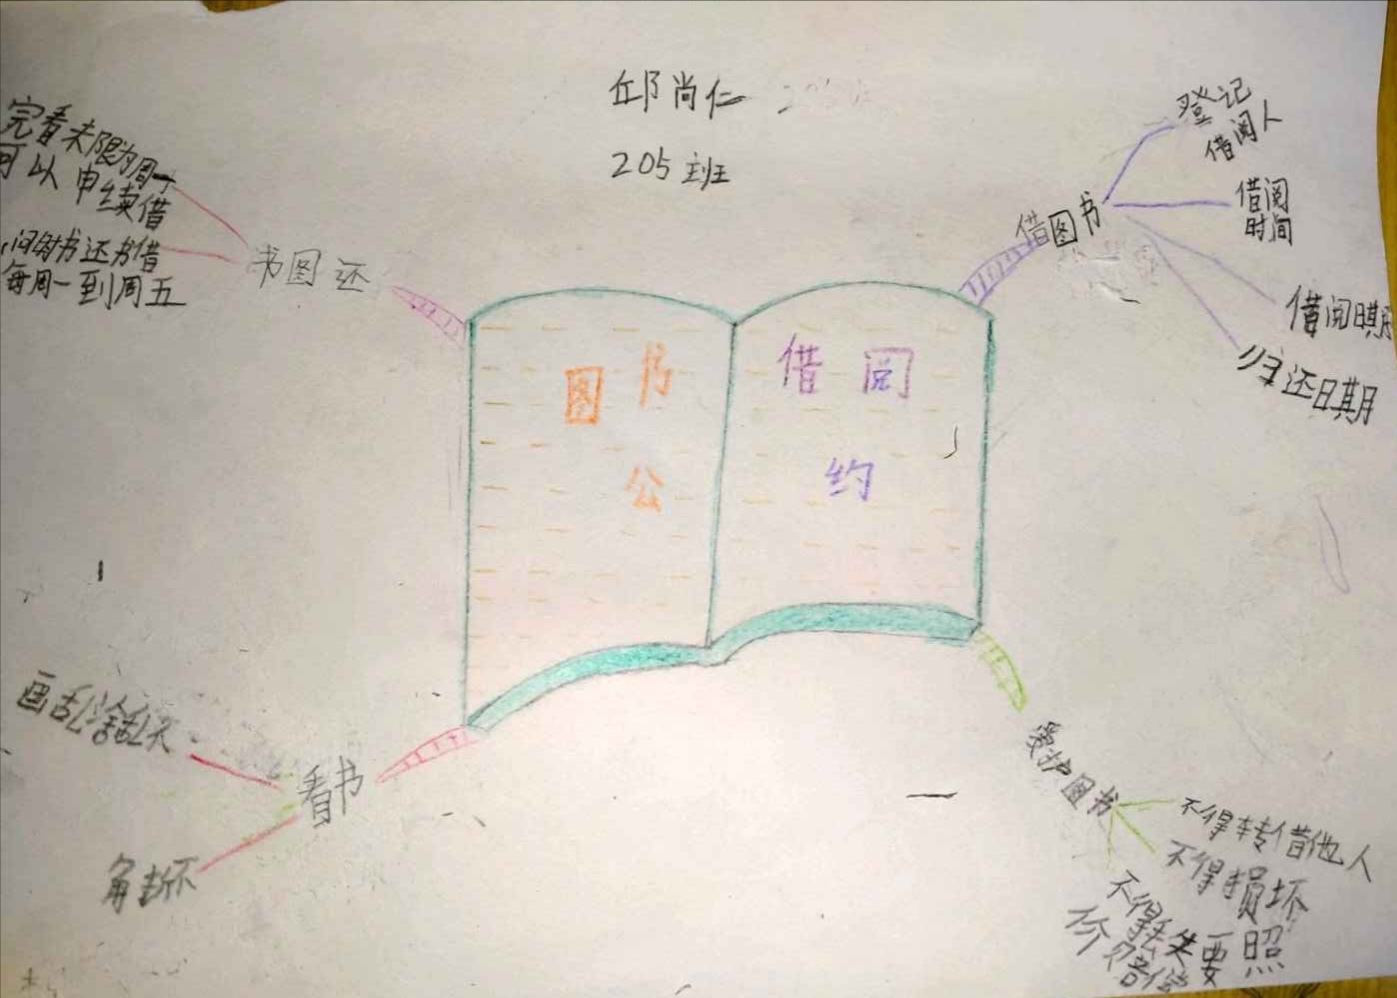 邱尚仁
205班
图书
公
借阅
约
借图书
登记
借阅人
借阅
时间
借阅日期
归还日期
爱护图书
不得转借他人
不得损坏
不得丢失要照
价赔偿
看书
画乱涂乱不
角折不
书图还
完看未限为周一
可以申续借
间时书还书借
每周一到周五